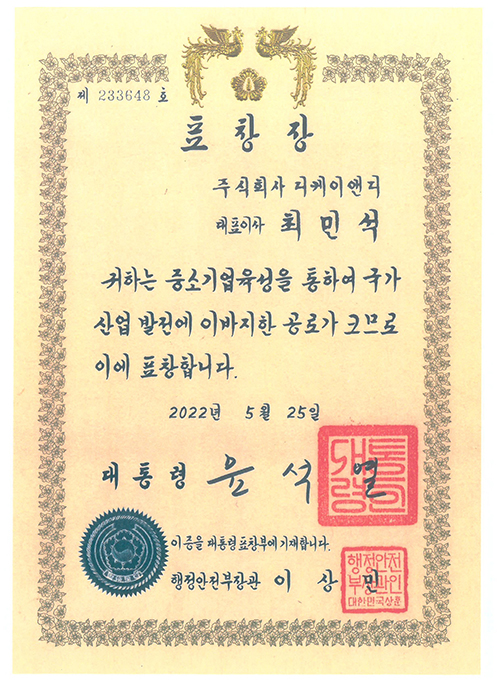 제 233648 호
표창장
주식회사 디케이앤디
대표이사 최민석
귀하는 중소기업육성을 통하여 국가
산업 발전에 이바지한 공로가 크므로
이에 표창합니다.
2022년 5월 25일
대통령 윤석열
대통령의
이 증을 대통령표창부에 기재합니다.
행정안전부장관 이상민
행정안전
부장관인
대한민국상훈